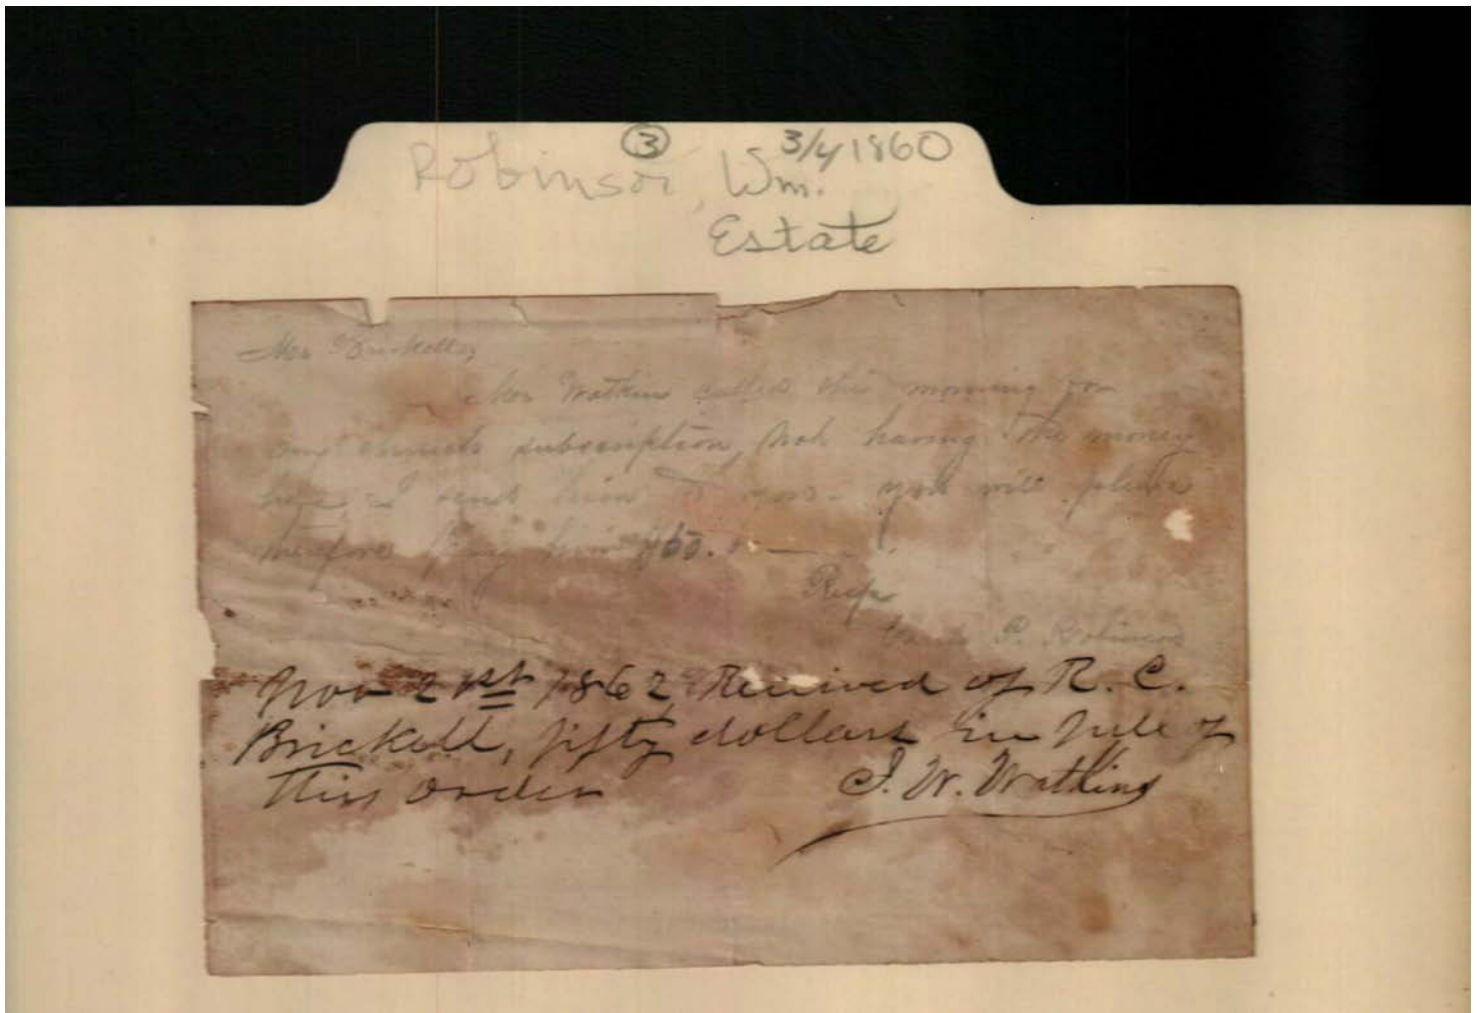 ③ 3/4 1860
Robinson, Wm.
Estate
Mr Brickell,
Mr Watkins called this morning for
my church subscription, Not having the money
here I send him to you. You will please
therefore pay him $50.
Resp
P. Robinson
Nov 21st 1862 Received of R. C.
Brickell, fifty dollars in full of
this order
J. W. Watkins